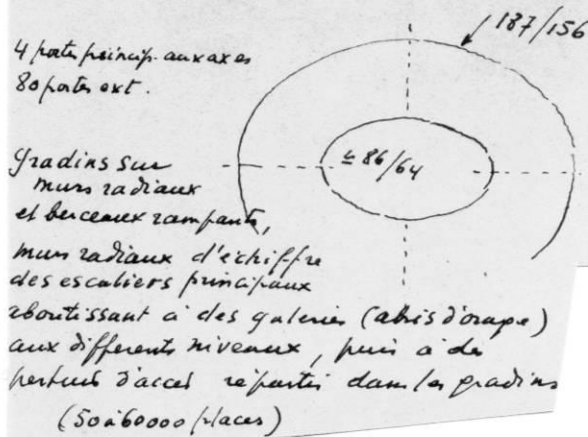 187/156
4 portes princip. aux axes
80 portes ext.
≤ 86/64
gradins sur
murs radiaux
et berceaux rampants,
murs radiaux d'échiffre
des escaliers principaux
aboutissant à des galeries (abris d'orage)
aux differents niveaux, puis à des
pertuis d'accès répartis dans les gradins
(50 à 60000 places)